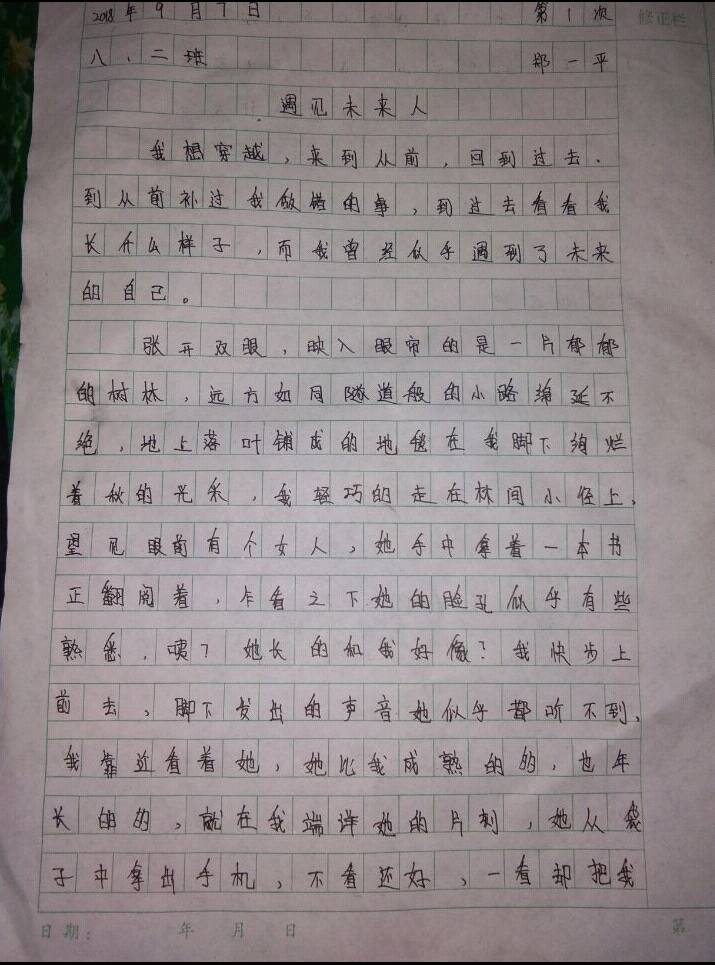 2018年9月7日 第1次 修正栏
八、二班 那一平
遇见未来人
我想穿越，来到从前，回到过去.
到从前补过我做错的事，到过去看看我
长什么样子，而我曾经似乎遇到了未来
的自己。
张开双眼，映入眼帘的是一片郁郁
的树林，远方如同隧道般的小路绵延不
绝，地上落叶铺成的地毯在我脚下绚烂
着秋的光采，我轻巧的走在林间小径上，
望见眼前有个女人，她手中拿着一本书
正翻阅着，乍看之下她的脸孔似乎有些
熟悉，咦？她长的和我好像？我快步上
前去，脚下发出的声音她似乎都听不到，
我靠近看着她，她比我成熟的的，也年
长的的，就在我端详她的片刻，她从袋
子中拿出手机，不看还好，一看却把我
日期： 年 月 日 第